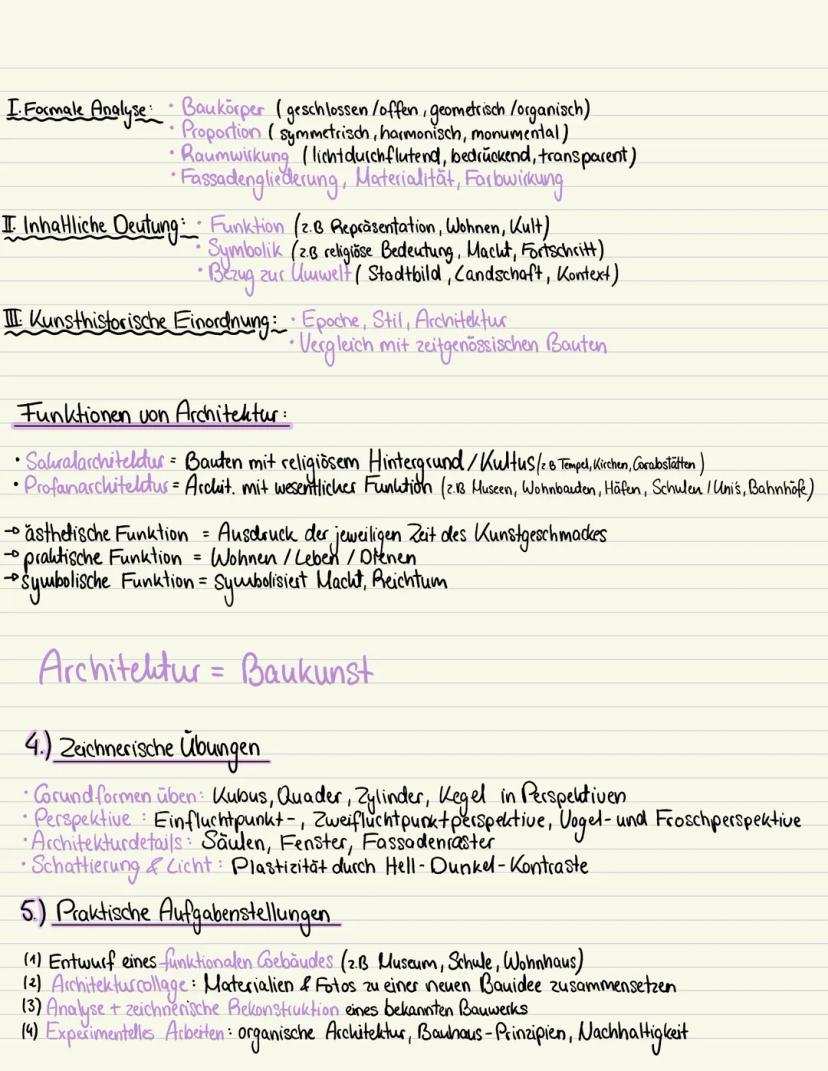 I. Formale Analyse: • Baukörper (geschlossen/offen, geometrisch/organisch)
• Proportion (symmetrisch, harmonisch, monumental)
• Raumwirkung (lichtdurchflutend, bedrückend, transparent)
• Fassadengliederung, Materialität, Farbwirkung
II. Inhaltliche Deutung: • Funktion (z.B Repräsentation, Wohnen, Kult)
• Symbolik (z.B religiöse Bedeutung, Macht, Fortschritt)
• Bezug zur Umwelt (Stadtbild, Landschaft, Kontext)
III. Kunsthistorische Einordnung: • Epoche, Stil, Architektur
• Vergleich mit zeitgenössischen Bauten
Funktionen von Architektur:
• Sakralarchitektur = Bauten mit religiösem Hintergrund/Kultus (z.B Tempel, Kirchen, Grabstätten)
• Profanarchitektur = Archit. mit wesentlicher Funktion (z.B Museen, Wohnbauden, Häfen, Schulen/Uni's, Bahnhöfe)
→ ästhetische Funktion = Ausdruck der jeweiligen Zeit des Kunstgeschmackes
→ praktische Funktion = Wohnen/Leben/Dienen
→ symbolische Funktion = Symbolisiert Macht, Reichtum
Architektur = Baukunst
4.) Zeichnerische Übungen
• Grundformen üben: Kubus, Quader, Zylinder, Kegel in Perspektiven
• Perspektive: Einfluchtpunkt-, Zweifluchtpunktperspektive, Vogel- und Froschperspektive
• Architekturdetails: Säulen, Fenster, Fassadenraster
• Schattierung & Licht: Plastizität durch Hell-Dunkel-Kontraste
5.) Praktische Aufgabenstellungen
(1) Entwurf eines funktionalen Gebäudes (z.B Museum, Schule, Wohnhaus)
(2) Architekturcollage: Materialien & Fotos zu einer neuen Bauidee zusammensetzen
(3) Analyse + zeichnerische Rekonstruktion eines bekannten Bauwerks
(4) Experimentelles Arbeiten: organische Architektur, Bauhaus-Prinzipien, Nachhaltigkeit